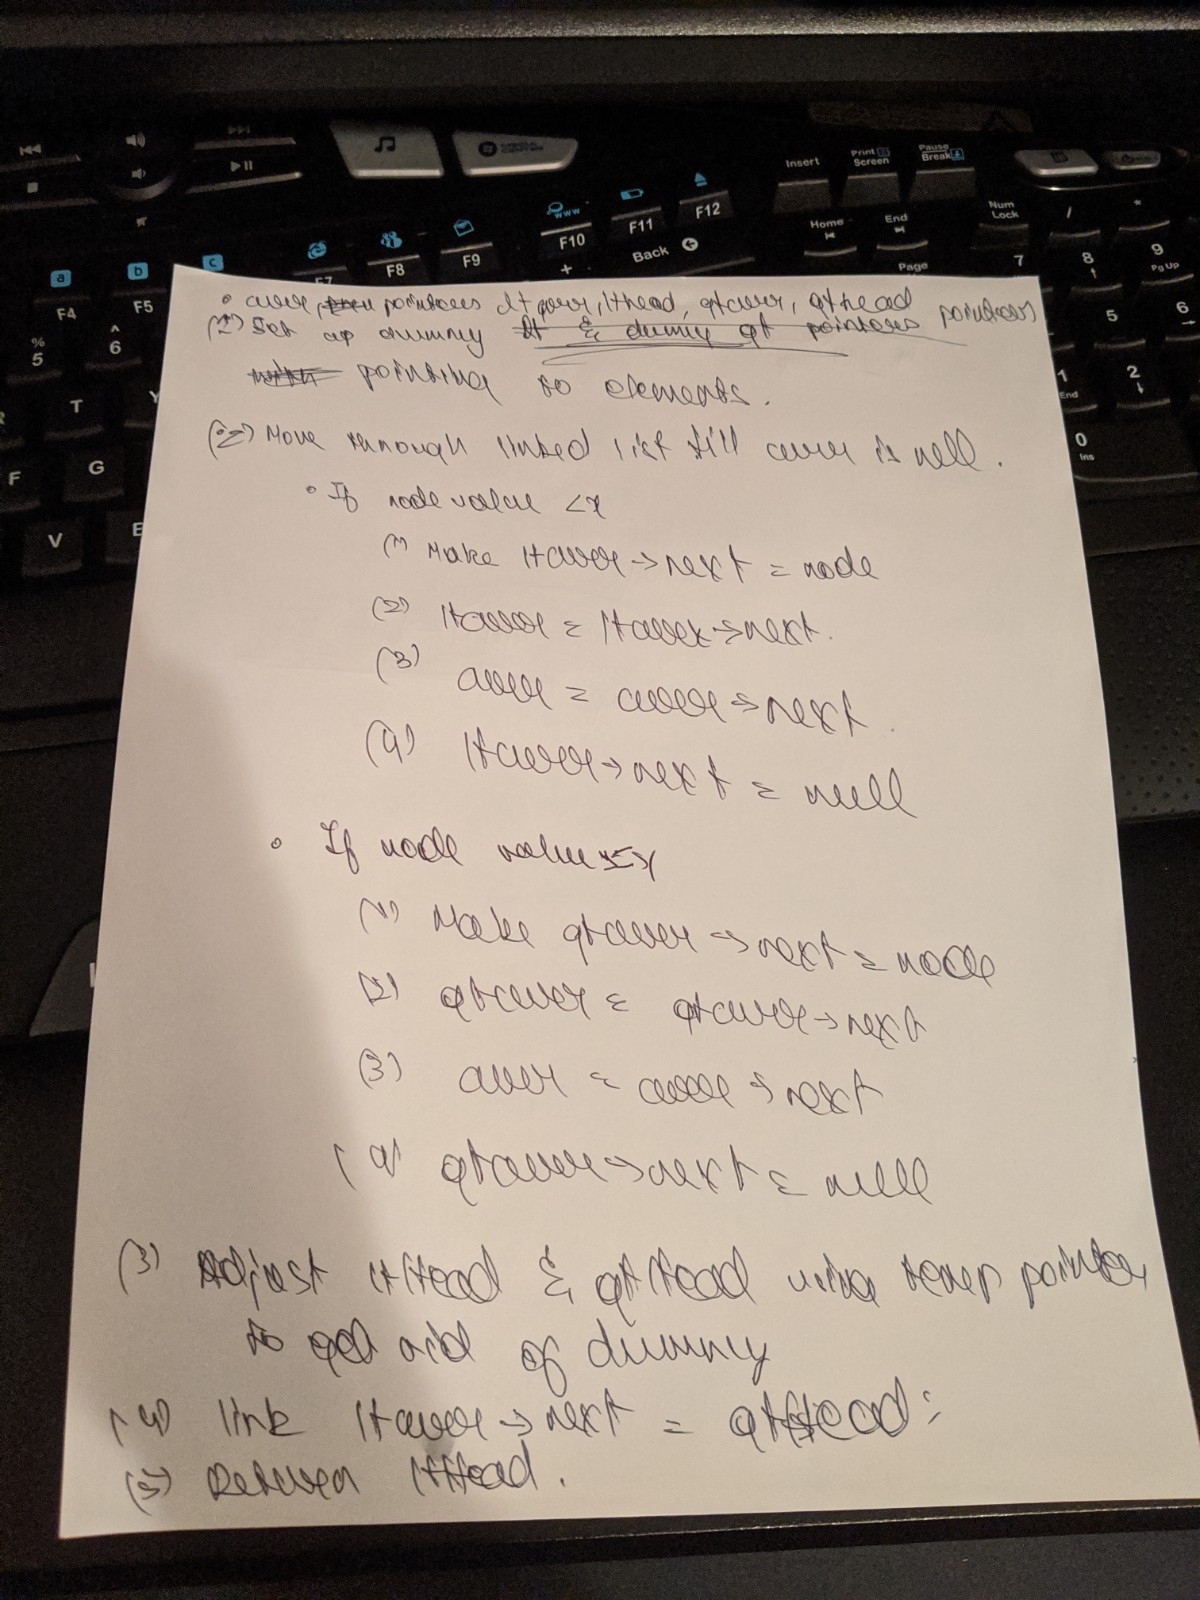 Insert
Print Screen
Pause Break
F12
F11
www
F10
F9
F8
F7
F5
F4
Back
+
Home
End
Page
Num Lock
/
*
7
8
9
PgUp
5
6
1
End
2
0
Ins
a
b
c
%
5
^
6
T
Y
F
G
V
E
• curr, pointers ltcurr, lthead, gtcurr, gthead
(1) Set up dummy lt & dummy gt pointers pointers
pointing to elements.
(2) Move through linked list till curr is null.
• If node value <x
(1) Make ltcurr→next = node
(2) ltcurr = ltcurr→next.
(3) curr = curr→next.
(4) ltcurr→next = null
• If node value ≥x
(1) Make gtcurr→next = node
(2) gtcurr = gtcurr→next
(3) curr = curr→next
(4) gtcurr→next = null
(3) Adjust ltHead & gtHead using temp pointer
to get rid of dummy
(4) link ltcurr→next = gtHead;
(5) Return ltHead.